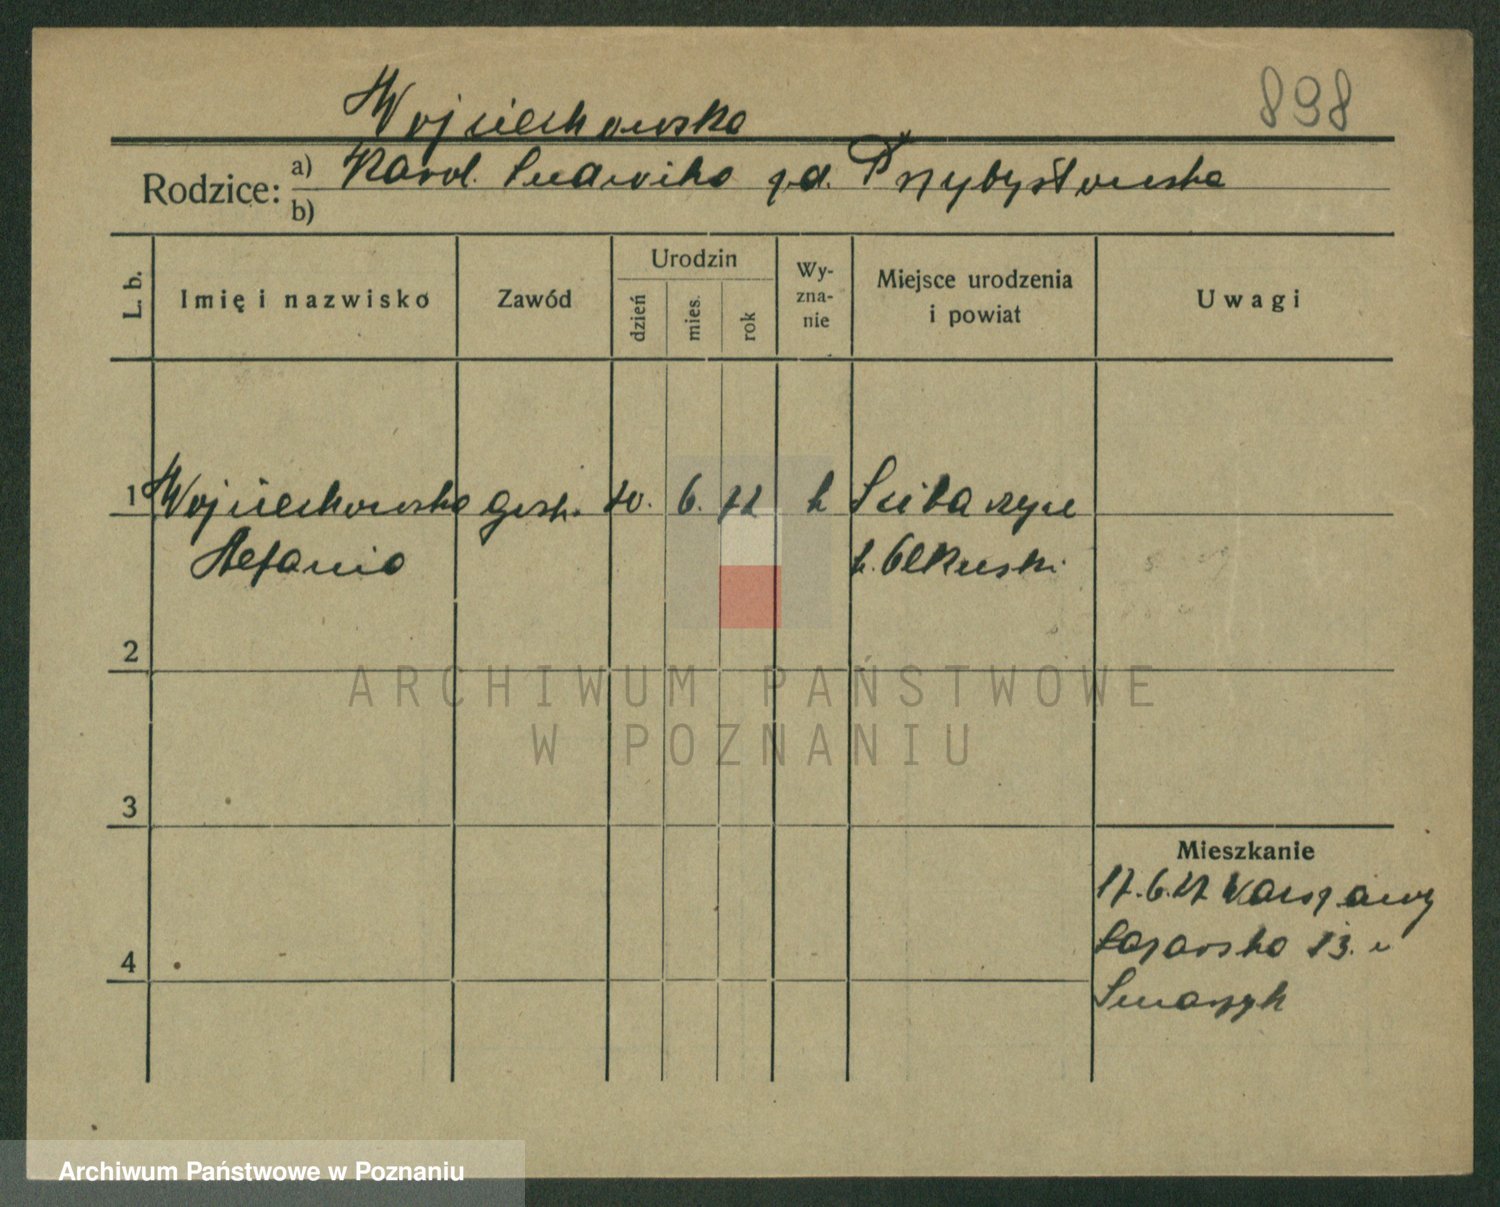 898
Wojciechowska
Rodzice: a) Karol. Ludwika zd. Przybysławska
b)
L. b. Imię i nazwisko Zawód Urodzin dzień mies. rok Wy-zna-nie Miejsce urodzenia i powiat Uwagi
1 Wojciechowska gosh. 10. 6. k
Stefania p. Olkuski
2
3
4
Mieszkanie
17.6.27 Warszawy
Łazarska 13. u
ARCHIWUM PAŃSTWOWE
W POZNANIU
Archiwum Państwowe w Poznaniu